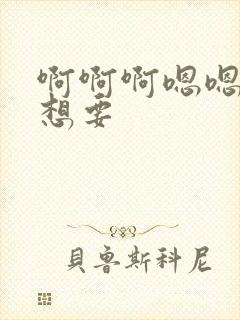 啊啊啊嗯嗯
想要
貝魯斯科尼